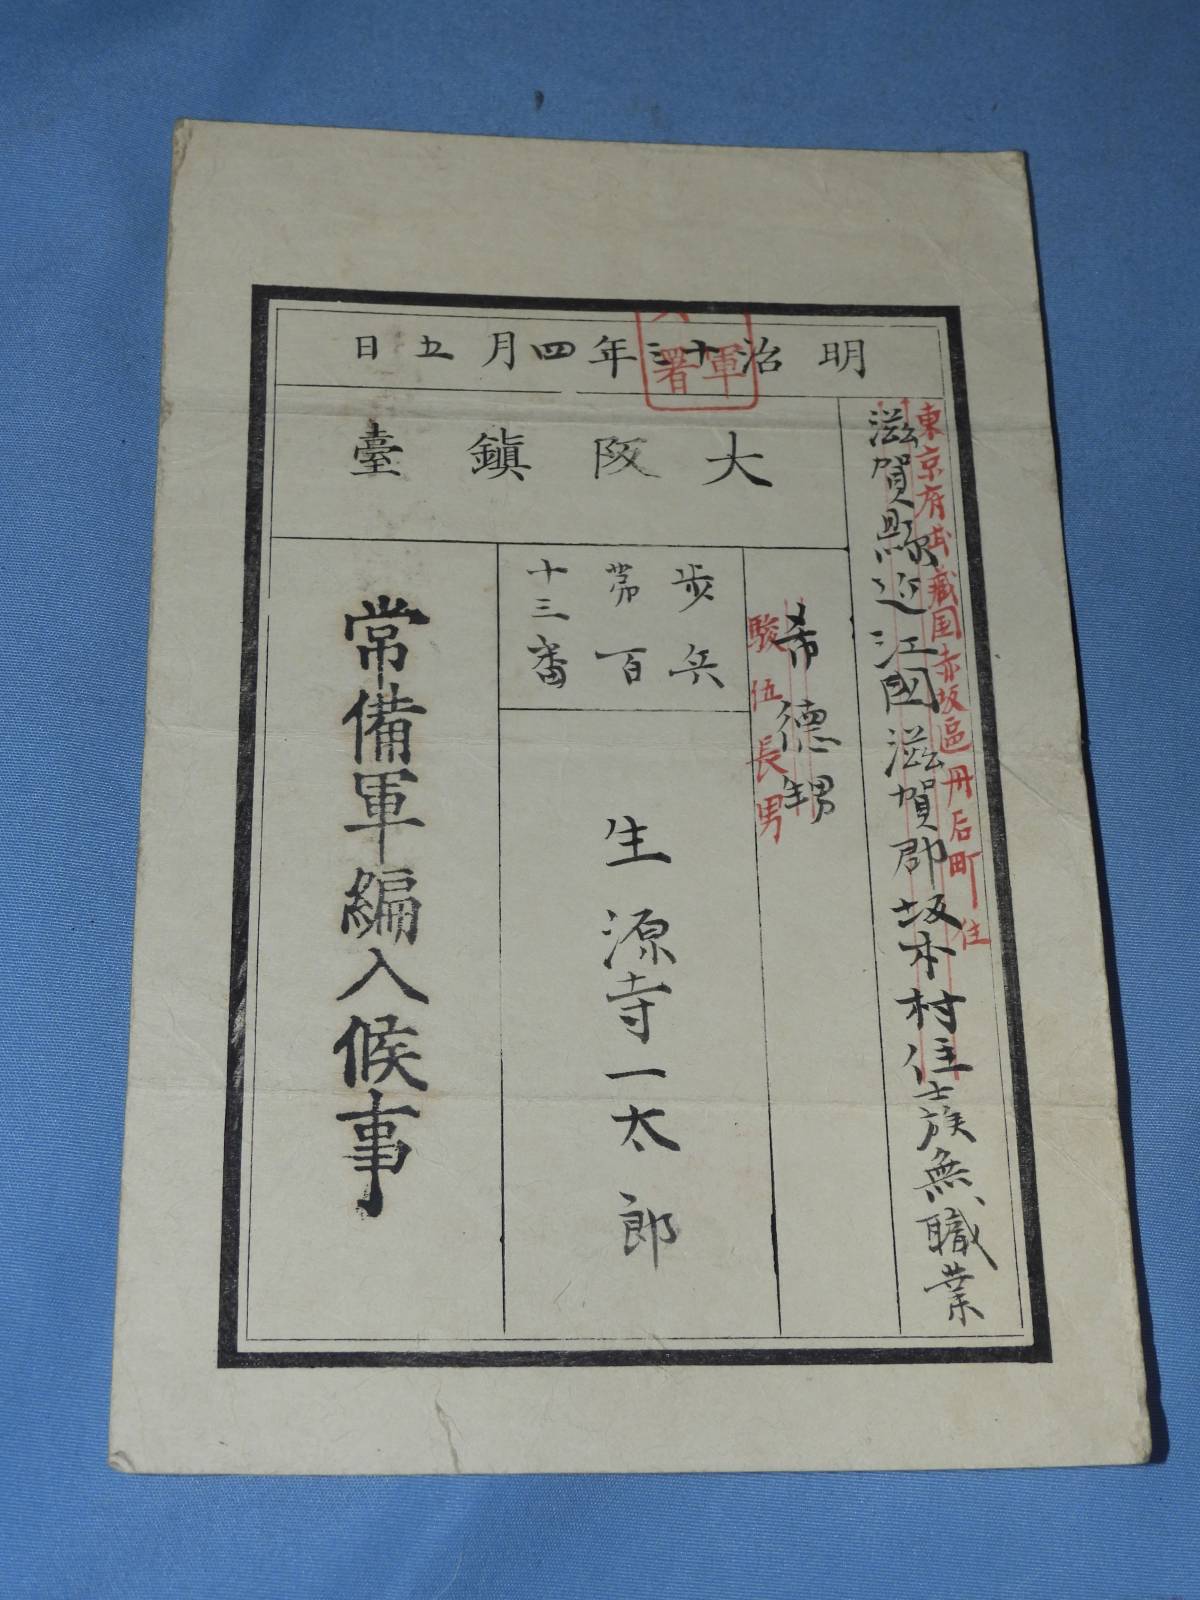 明治十三年四月五日
軍
署
大阪鎮臺
東京府武蔵国赤坂區丹后町住
滋賀縣近江國滋賀郡坂本村住士族無職業
希徳甥
駿伍長男
歩兵
第百
十三番
生源寺一太郎
常備軍編入候事